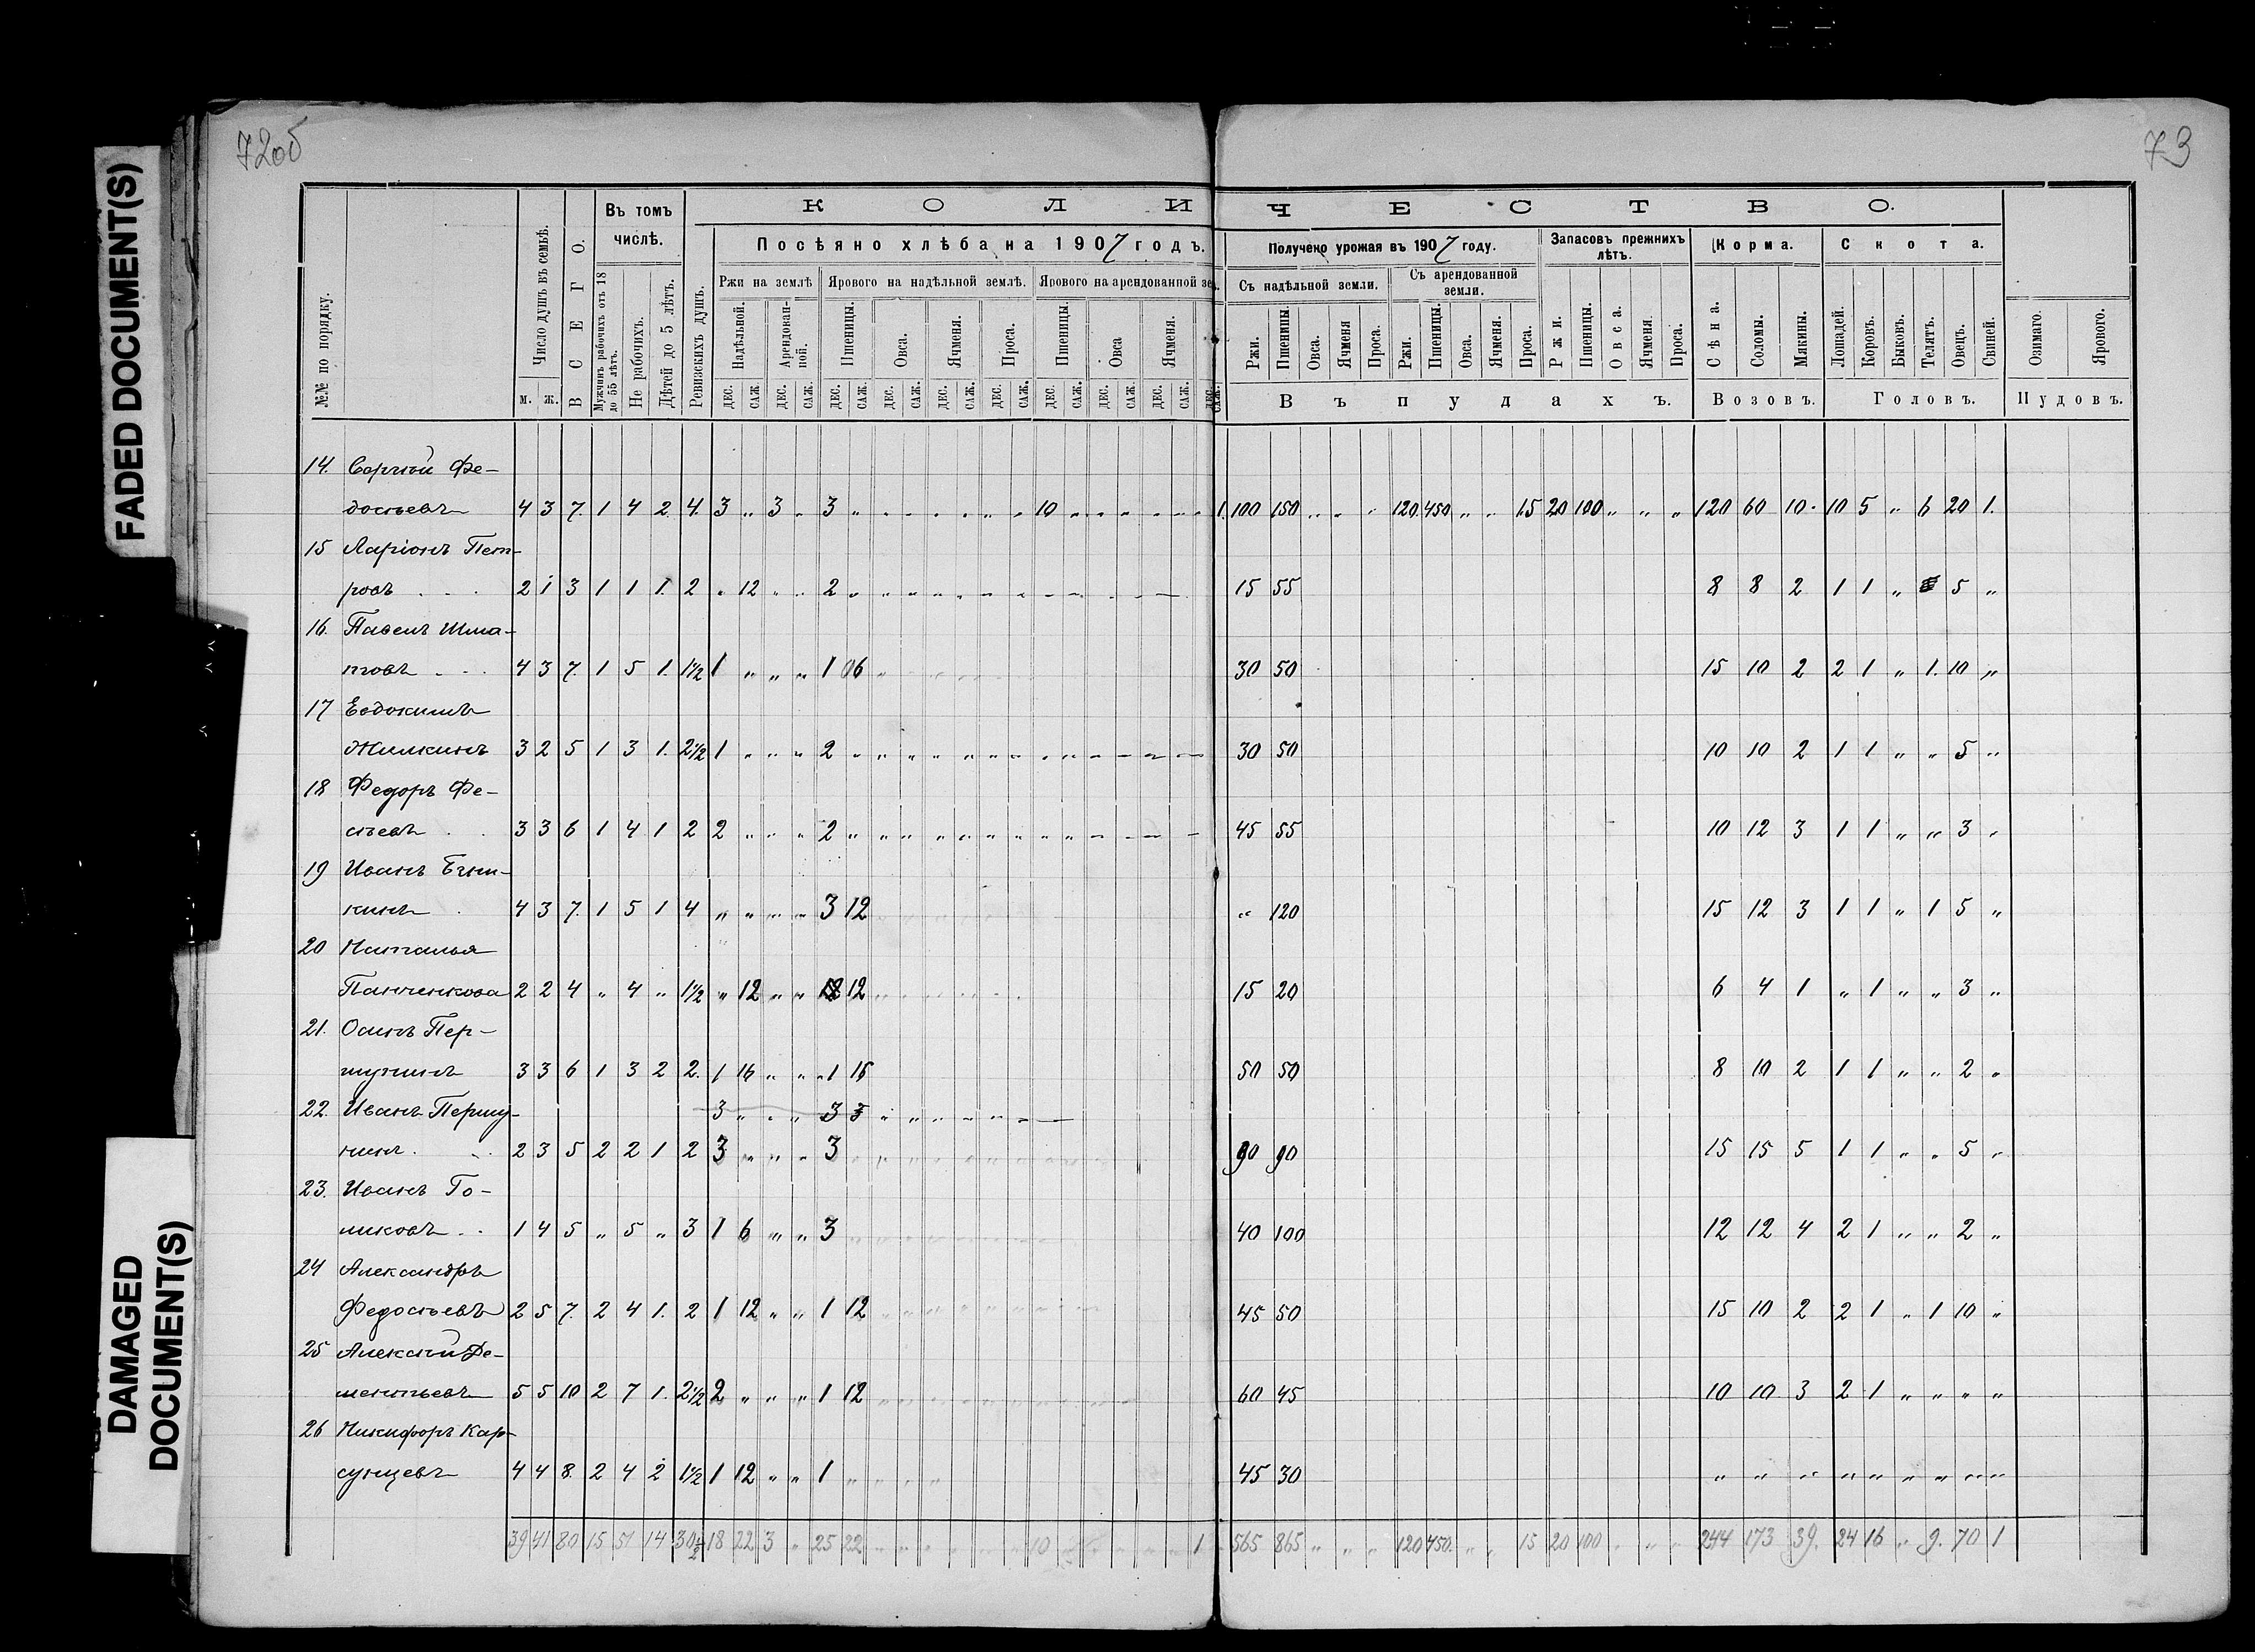 FADED DOCUMENT(S)
DAMAGED DOCUMENT(S)
72об
73
КОЛИЧЕСТВО.
№№ по порядку.
Число душъ въ семьѣ.
м. ж.
ВСЕГО.
Въ томъ числѣ.
Мужчинъ рабочихъ отъ 18 до 55 лѣтъ.
Не рабочихъ.
Дѣтей до 5 лѣтъ.
Ревизскихъ душъ.
Посѣяно хлѣба на 1907 годъ.
Ржи на землѣ
Надѣльной.
Арендованной.
Ярового на надѣльной землѣ.
Пшеницы. Овса. Ячменя. Проса.
Ярового на арендованной зем.
Пшеницы. Овса Ячменя.
ДЕС. САЖ. ДЕС. САЖ. ДЕС. САЖ. ДЕС. САЖ. ДЕС. САЖ. ДЕС. САЖ. ДЕС. САЖ. ДЕС. САЖ. ДЕС. САЖ. ДЕС. САЖ.
Получено урожая въ 1907 году.
Съ надѣльной земли.
Ржи. Пшеницы. Овса. Ячменя Проса.
Съ арендованной земли.
Ржи. Пшеницы. Овса. Ячменя. Проса.
Запасовъ прежнихъ лѣтъ.
Ржи. Пшеницы. Овса. Ячменя. Проса.
Въ пудахъ.
Корма.
Сѣна. Соломы. Мякины.
Возовъ.
Скота.
Лошадей. Коровъ. Быковъ. Телятъ. Овецъ. Свиней.
Головъ.
Озимаго. Ярового.
Пудовъ.
14. Сергѣй Фе-
достьевъ 4 3 7. 1 4 2. 4. 3 „ 3 „ 3 „ 10 1. 100 150 „ „ „ 120. 450 „ „ 15 20 100 „ „ „ 120 60 10. 10 5 „ 6 20 1.
15 Ларіонъ Пет-
ровъ 2 1 3 1 1 1. 2 „ 12 „ „ 2 „ 15 55 8 8 2 1 1 „ 5 „
16. Павелъ Шма-
4 3 7. 1 5 1. 1½ 1 „ „ „ 1 06 30 50 15 10 2 2 1 „ 1. 10 „
17 Евдокимъ
Жилкинъ 3 2 5 1 3 1. 2½ 1 „ „ „ 2 „ 30 50 10 10 2 1 1 „ „ 5 „
18 Федоръ Фе-
3 3 6 1 4 1 2 2 „ „ „ 2 „ 45 55 10 12 3 1 1 „ „ 3 „
19 Иванъ
кинъ 4 3 7. 1 5 1 4 „ „ „ „ 3 12 „ 120 15 12 3 1 1 „ 1 5 „
20 Наталья
Панченкова 2 2 4 „ 4 „ 1½ „ 12 „ „ 12 15 20 6 4 1 „ 1 „ „ 3 „
21. Осипъ Пер-
шунинъ 3 3 6 1 3 2 2. 1 16 „ „ 1 16 50 50 8 10 2 1 1 „ „ 2 „
22. Иванъ Першу- 3 „ „ „ 3 3
нинъ. 2 3 5 2 2 1 2 3 „ „ „ 3 90 90 15 15 5 1 1 „ „ 5 „
23. Иванъ Го-
ликовъ 1 4 5 „ 5 „ 3 1 6 „ „ 3 40 100 12 12 4 2 1 „ „ 2 „
24 Александръ
Федостьевъ 2 5 7. 2 4 1. 2 1 12 „ „ 1 12 45 50 15 10 2 2 1 „ 1 10 „
25 Алексѣй Де-
ментьевъ 5 5 10 2 7 1. 2½ 2 „ „ „ 1 12 60 45 10 10 3 2 1 „ „ „ „
26 Никифоръ Кар-
сунцевъ 4 4 8. 2 4 2 1½ 1 12 „ „ 1 45 30 „ „ „ „ „ „ „ „ „
39 41 80 15 51 14 30½ 18 22 3 „ 25 22 10 1 565 865 „ „ „ 120 450. „ „ 15 20 100 „ „ „ 244 173 39. 24 16 „ 9. 70 1